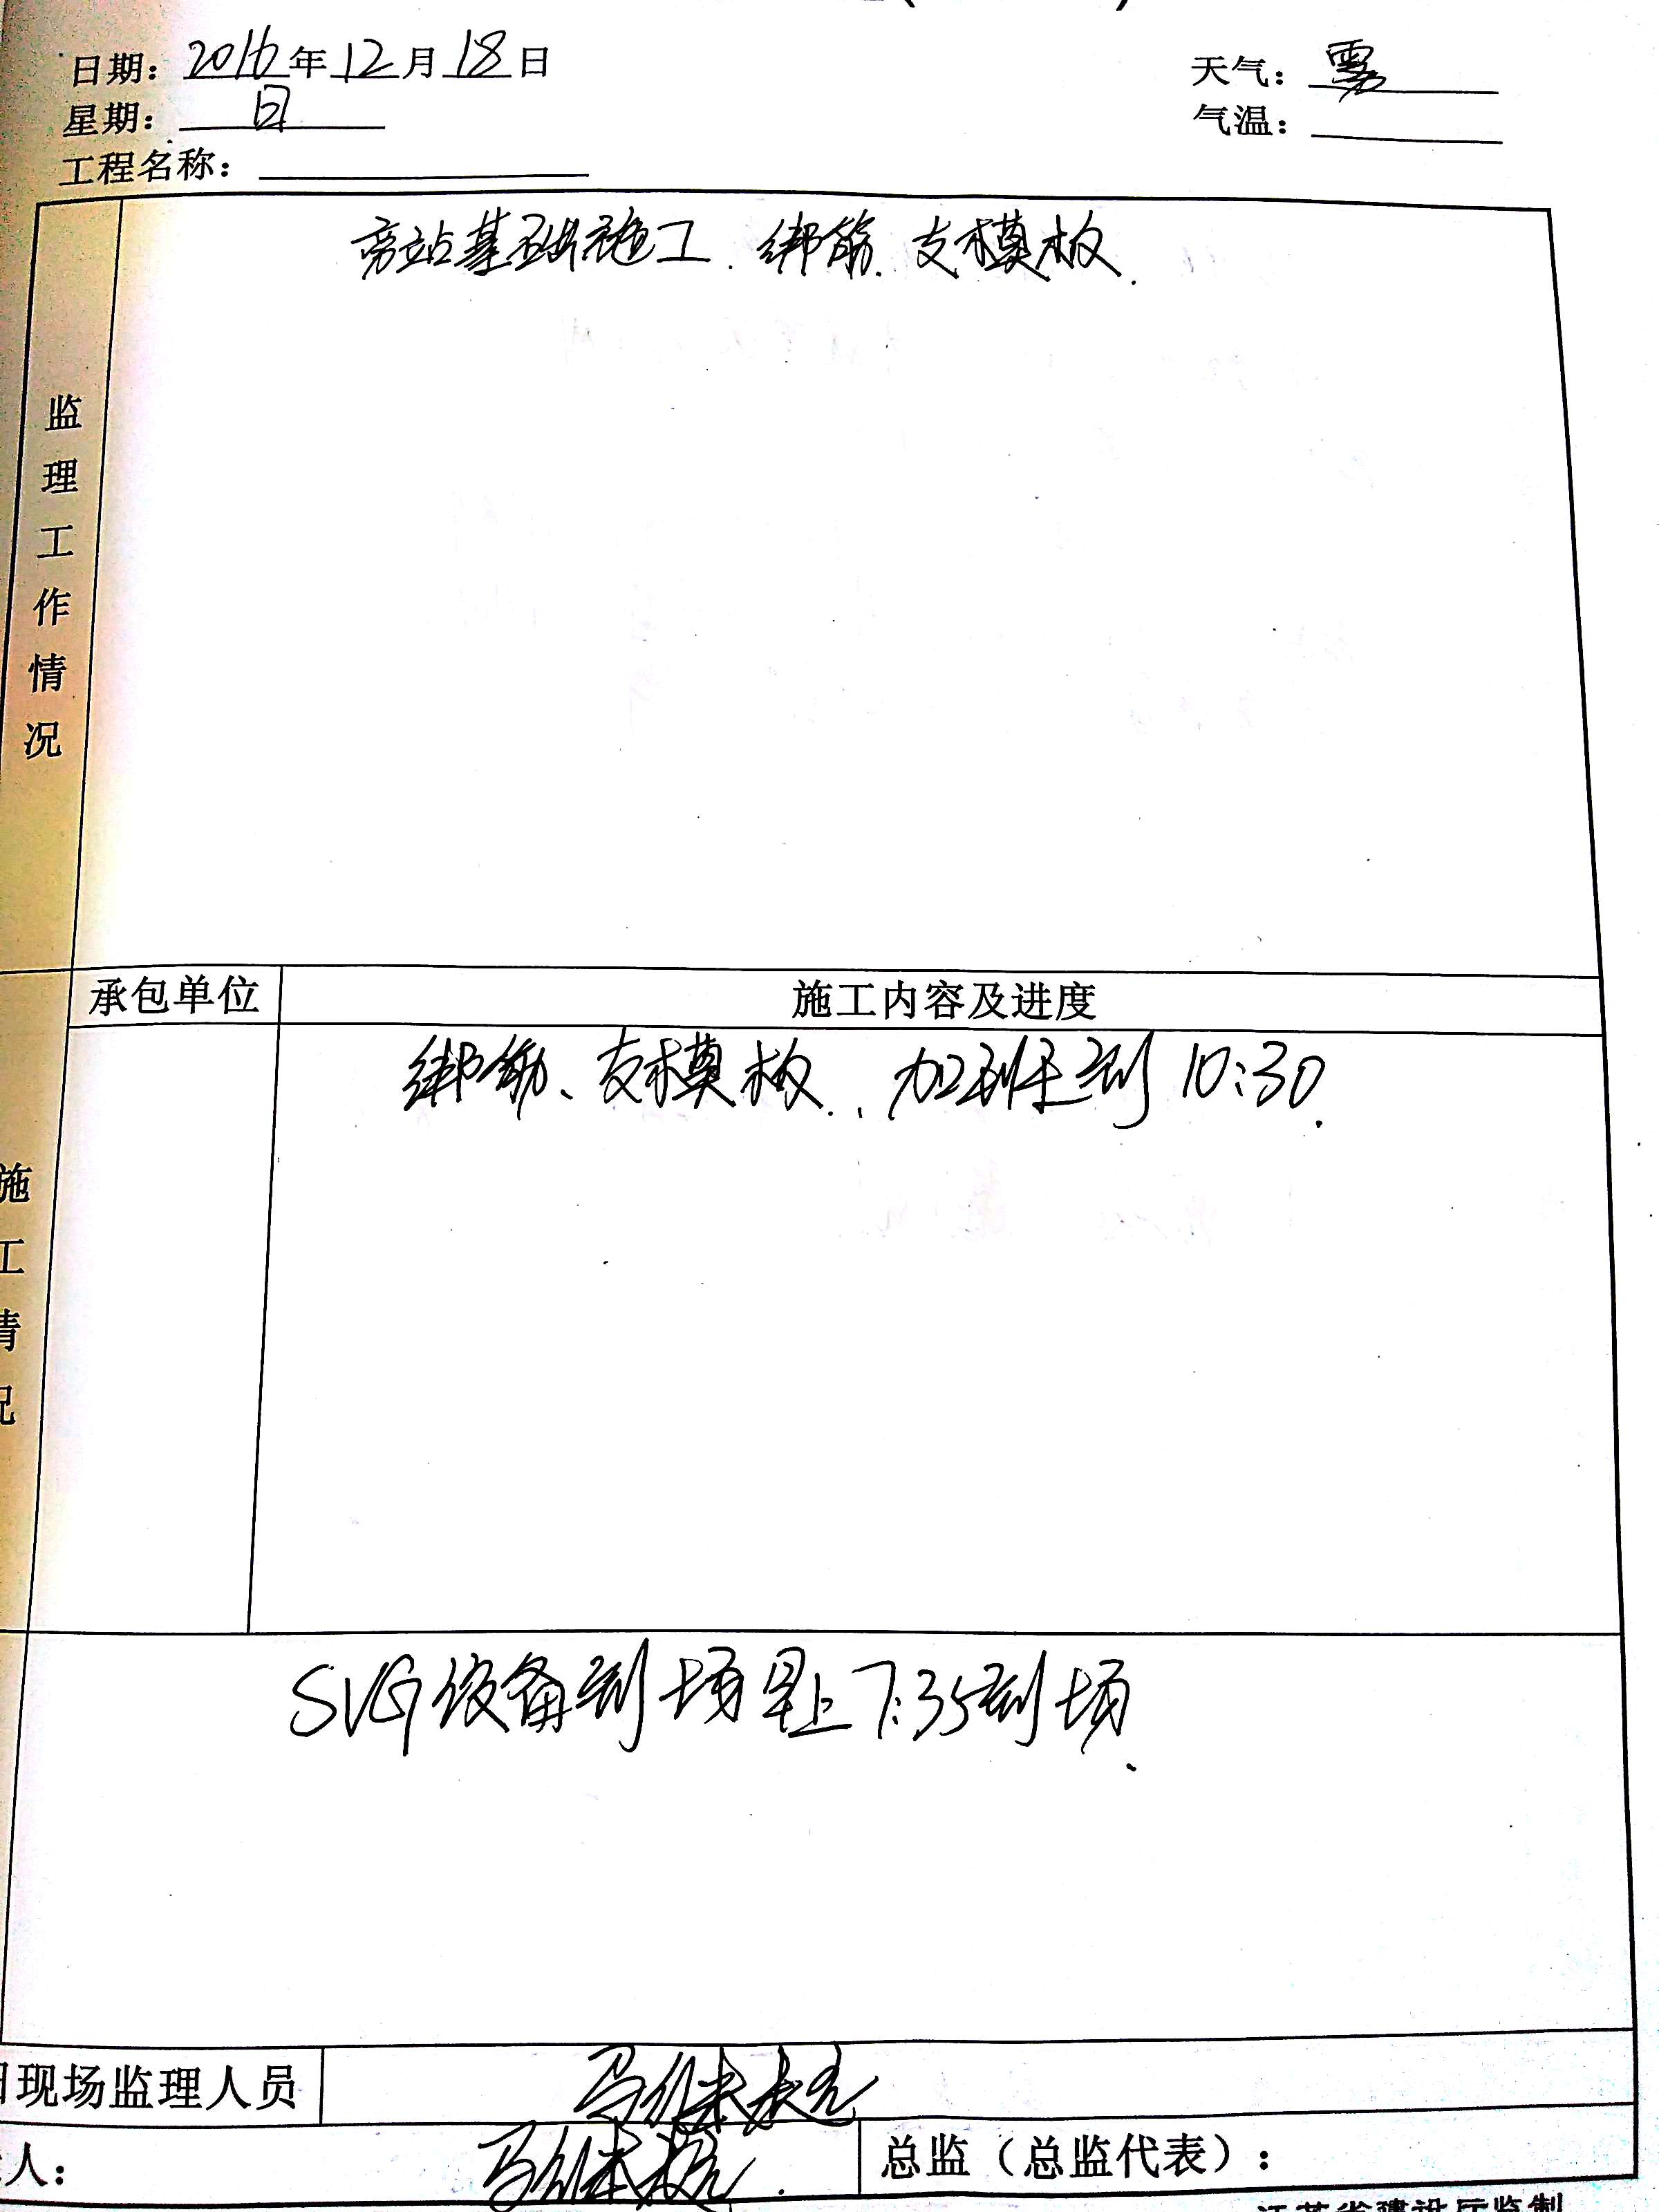 日期：2016年12月18日
天气：雾
星期：日
气温：
工程名称：
监理工作情况
旁站基础施工、绑筋、支模板.
承包单位
施工内容及进度
施工情况
绑筋、支模板.、加班到10:30.
SVG设备到场早上7:35到场.
现场监理人员
人：
总监（总监代表）：
江苏省建设厅监制